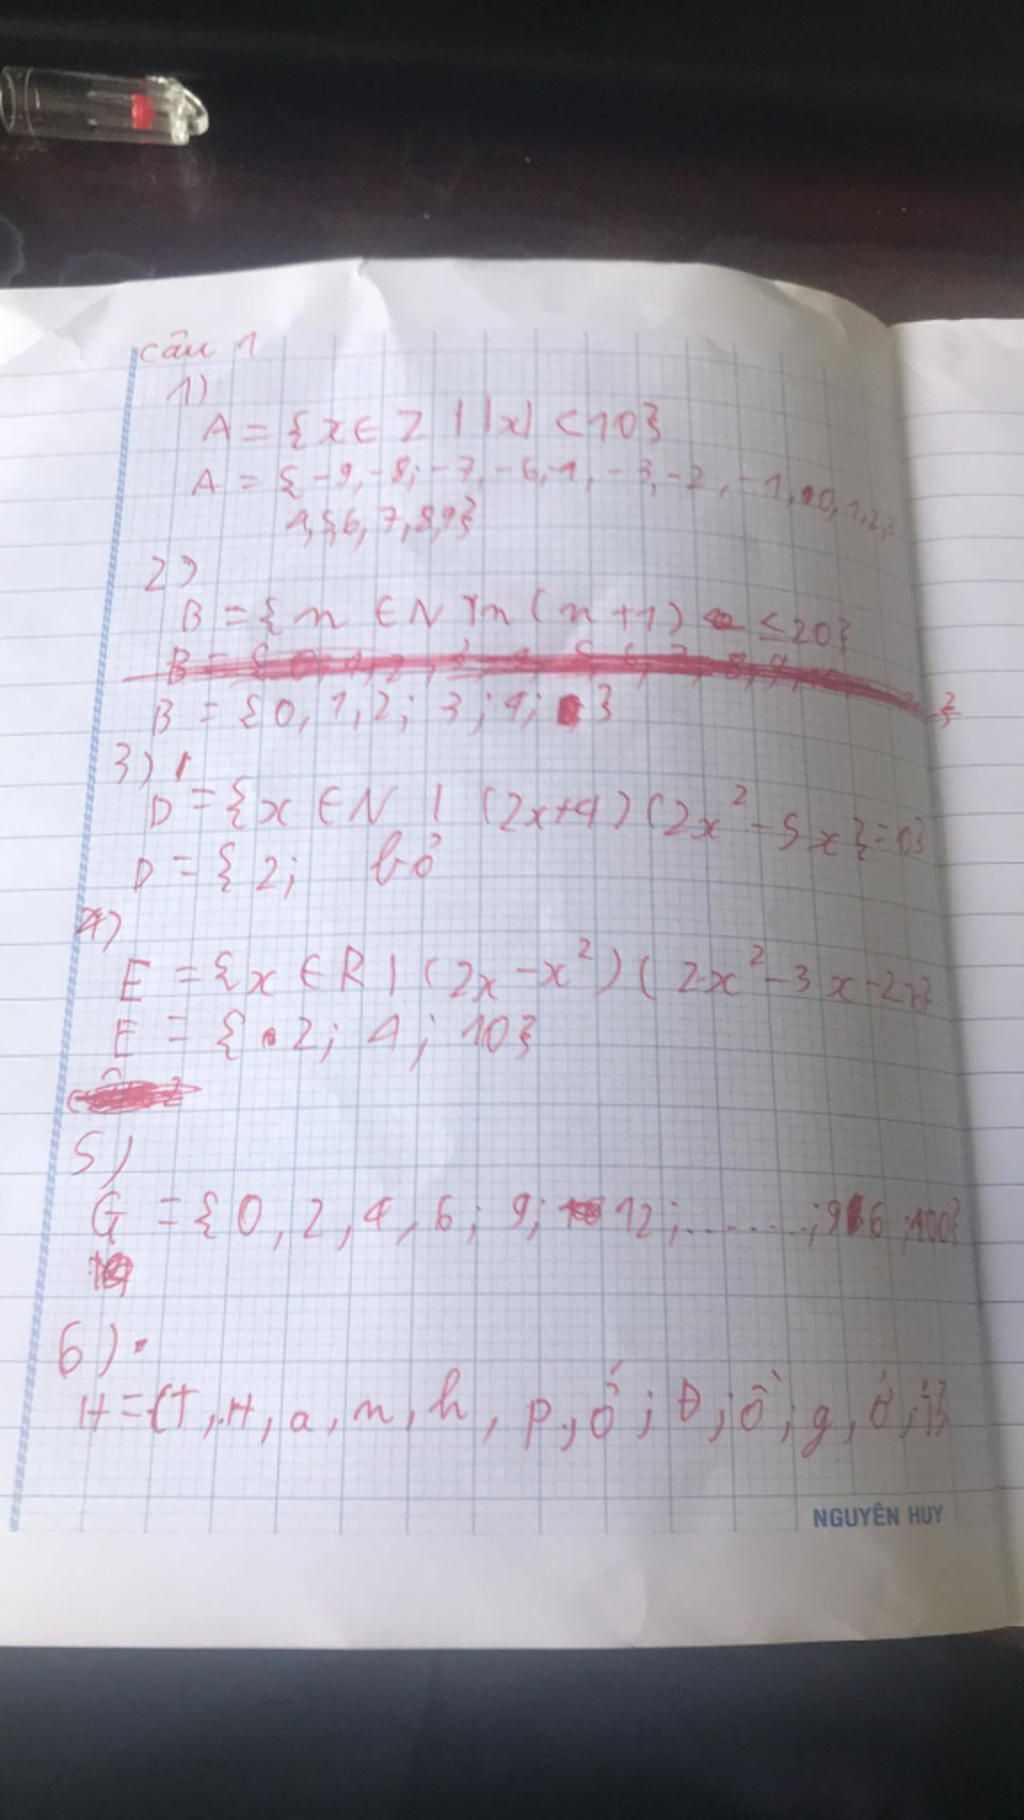 Câu 1
1)
A = {x ∈ Z | |x| < 10}
A = {-9, -8; -7, -6, -4, -3, -2, -1, 0, 1, 2, 3
4, 5, 6, 7, 8, 9}
2)
B = {n ∈ N | n (n + 1) ≤ 20}
B = {0, 1, 2; 3; 4; }
3)
D = {x ∈ N | (2x+4) (2x² - 5x} = 0}
D = { 2; bỏ
4)
E = {x ∈ R | (2x - x²) ( 2x² - 3x - 2
E = { 2; 4; 10}
5)
G = {0, 2, 4, 6; 9; 12; .......; 96; 100}
6)
H = {T, H, a, n, h, p, ố; Đ; ồ; g, ở; i}
NGUYÊN HUY